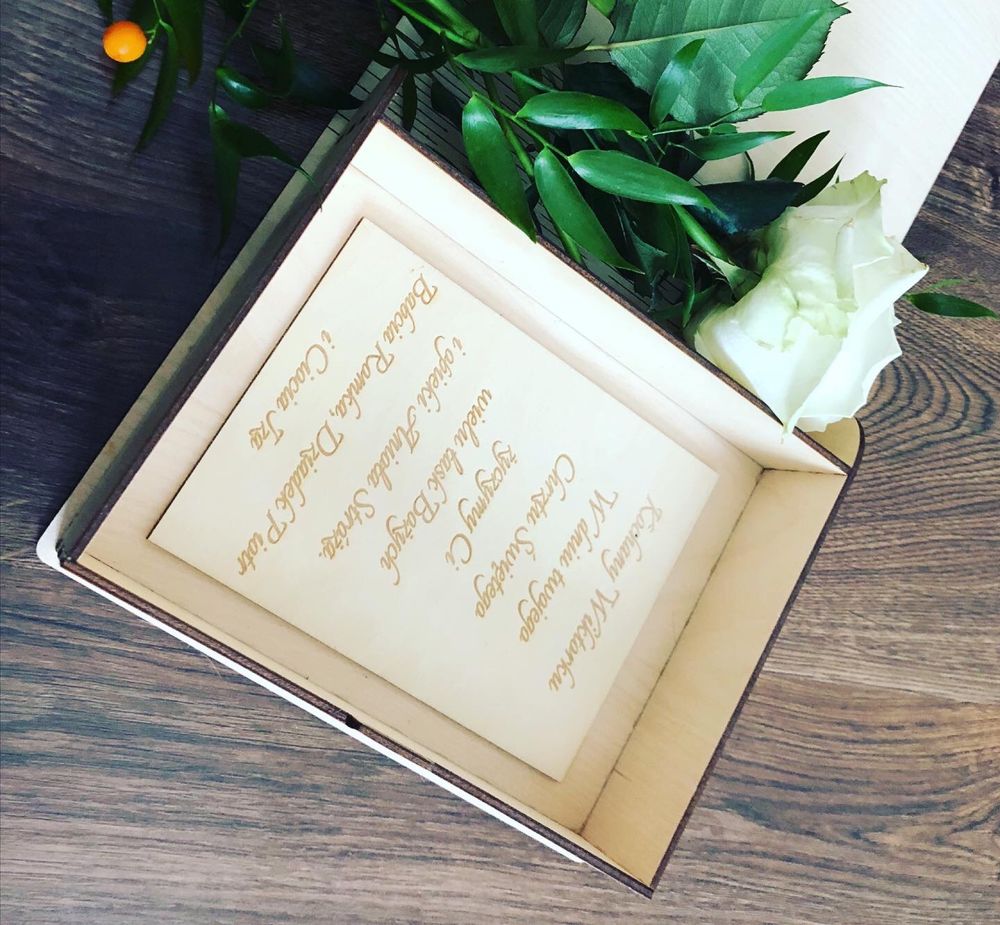 Kochany Wiktorku
W dniu twojego
Chrztu Świętego
życzymy Ci
wielu łask Bożych
i opieki Anioła Stróża.
Babcia Romka, Dziadek Piotr
i Ciocia Iza